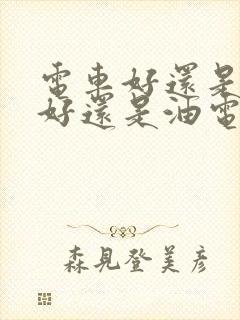 電車好還是
好還是油電
森見登美彦